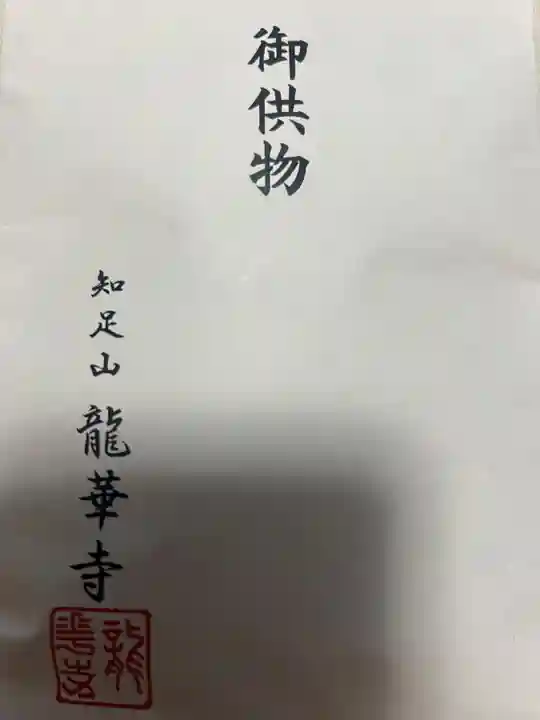 御供物
知足山 龍華寺